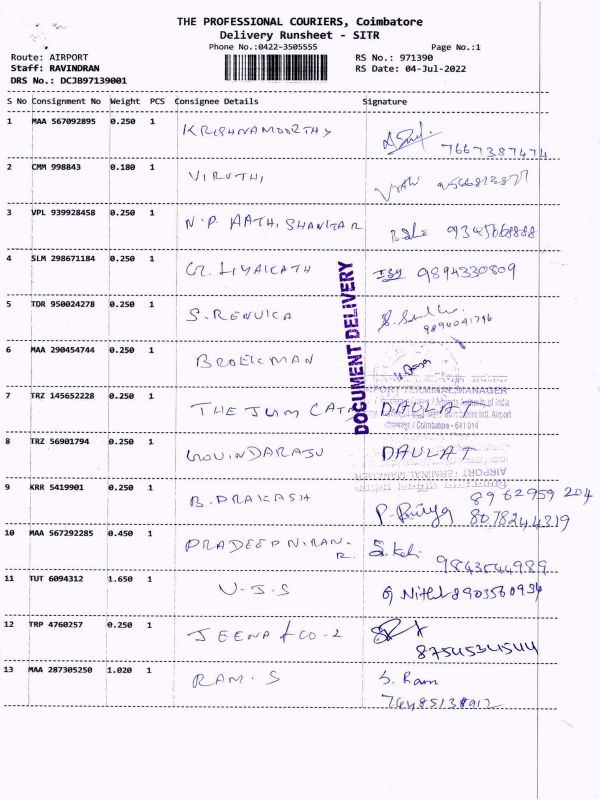 THE PROFESSIONAL COURIERS, Coimbatore
Delivery Runsheet - SITR
Phone No.:0422-3505555 Page No.:1
Route: AIRPORT RS No.: 971390
Staff: RAVINDRAN RS Date: 04-Jul-2022
DRS No.: DCJB97139001
S No Consignment No Weight PCS Consignee Details Signature
1 MAA 567092895 0.250 1 KRISHNAMOORTHY
7667387474
2 CMM 998843 0.180 1 VIRUTHI
3 VPL 939928458 0.250 1 N.P. AATHI SHANKAR 9345668888
4 SLM 298671184 0.250 1 LIYAICATH 9894330809
5 TDR 950024278 0.250 1 S. RENUKA
9894091796
6 MAA 290454744 0.250 1 BROEKMAN
DOCUMENT DELIVERY
AIRPORT TERMINAL MANAGER
Authority of India
Coimbatore Intl. Airport
/ Coimbatore - 641 014
7 TRZ 145652228 0.250 1 THE JUM DAULAT
8 TRZ 56901794 0.250 1 GOVINDARAJU DAULAT
AIRPORT TERMINAL MANAGER
9 KRR 5419901 0.250 1 B. PRAKASH 8962959204
P. 8078244319
10 MAA 567292285 0.450 1 PRADEEP NIRAN-
R. 9843544989
11 TUT 6094312 1.650 1 V.J.S 8903560934
12 TRP 4760257 0.250 1 JEENA & CO-2
8754534544
13 MAA 287305250 1.020 1 RAM.S S. Ram